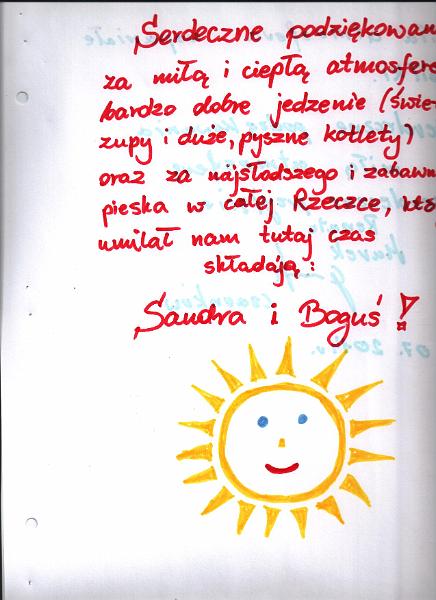 Serdeczne podziękowan
za miłą i ciepłą atmosferę
bardzo dobre jedzenie (świe
zupy i duże, pyszne kotlety)
oraz za najsłodszego i zabawn
pieska w całej Rzeczce, któ
umilał nam tutaj czas
składają:
Sandra i Boguś!